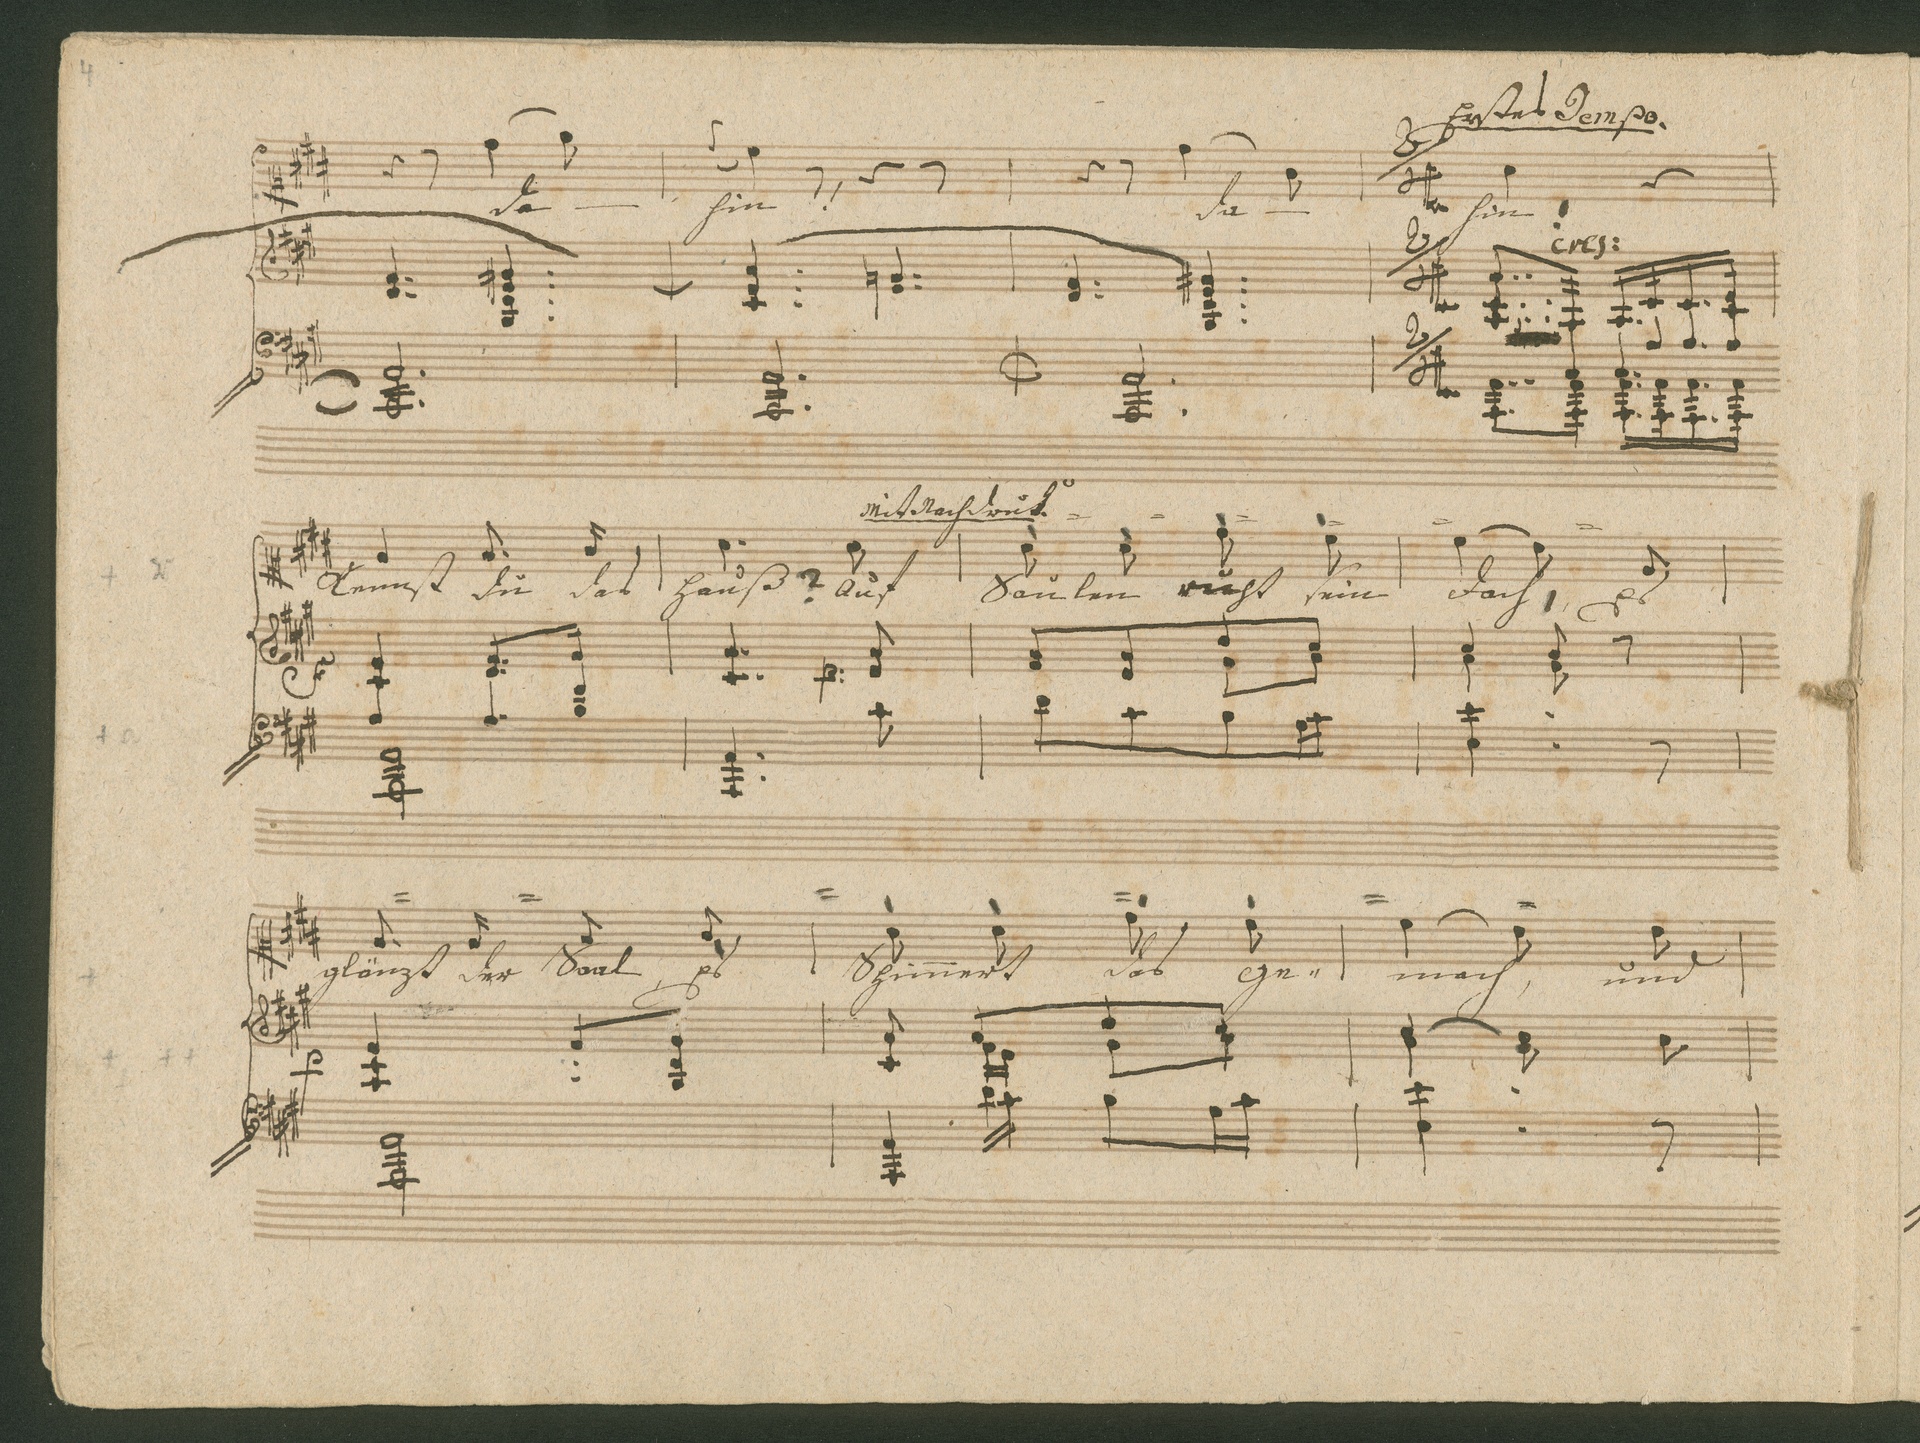 4
Erstes Tempo.
da — hin ! da — hin !
cres:
Mit Nachdruk.
Kennst du das Hauß? auf Saulen ruht sein dach, es
p:
glänzt der Saal es Shim̅ert das ge= mach, und
p